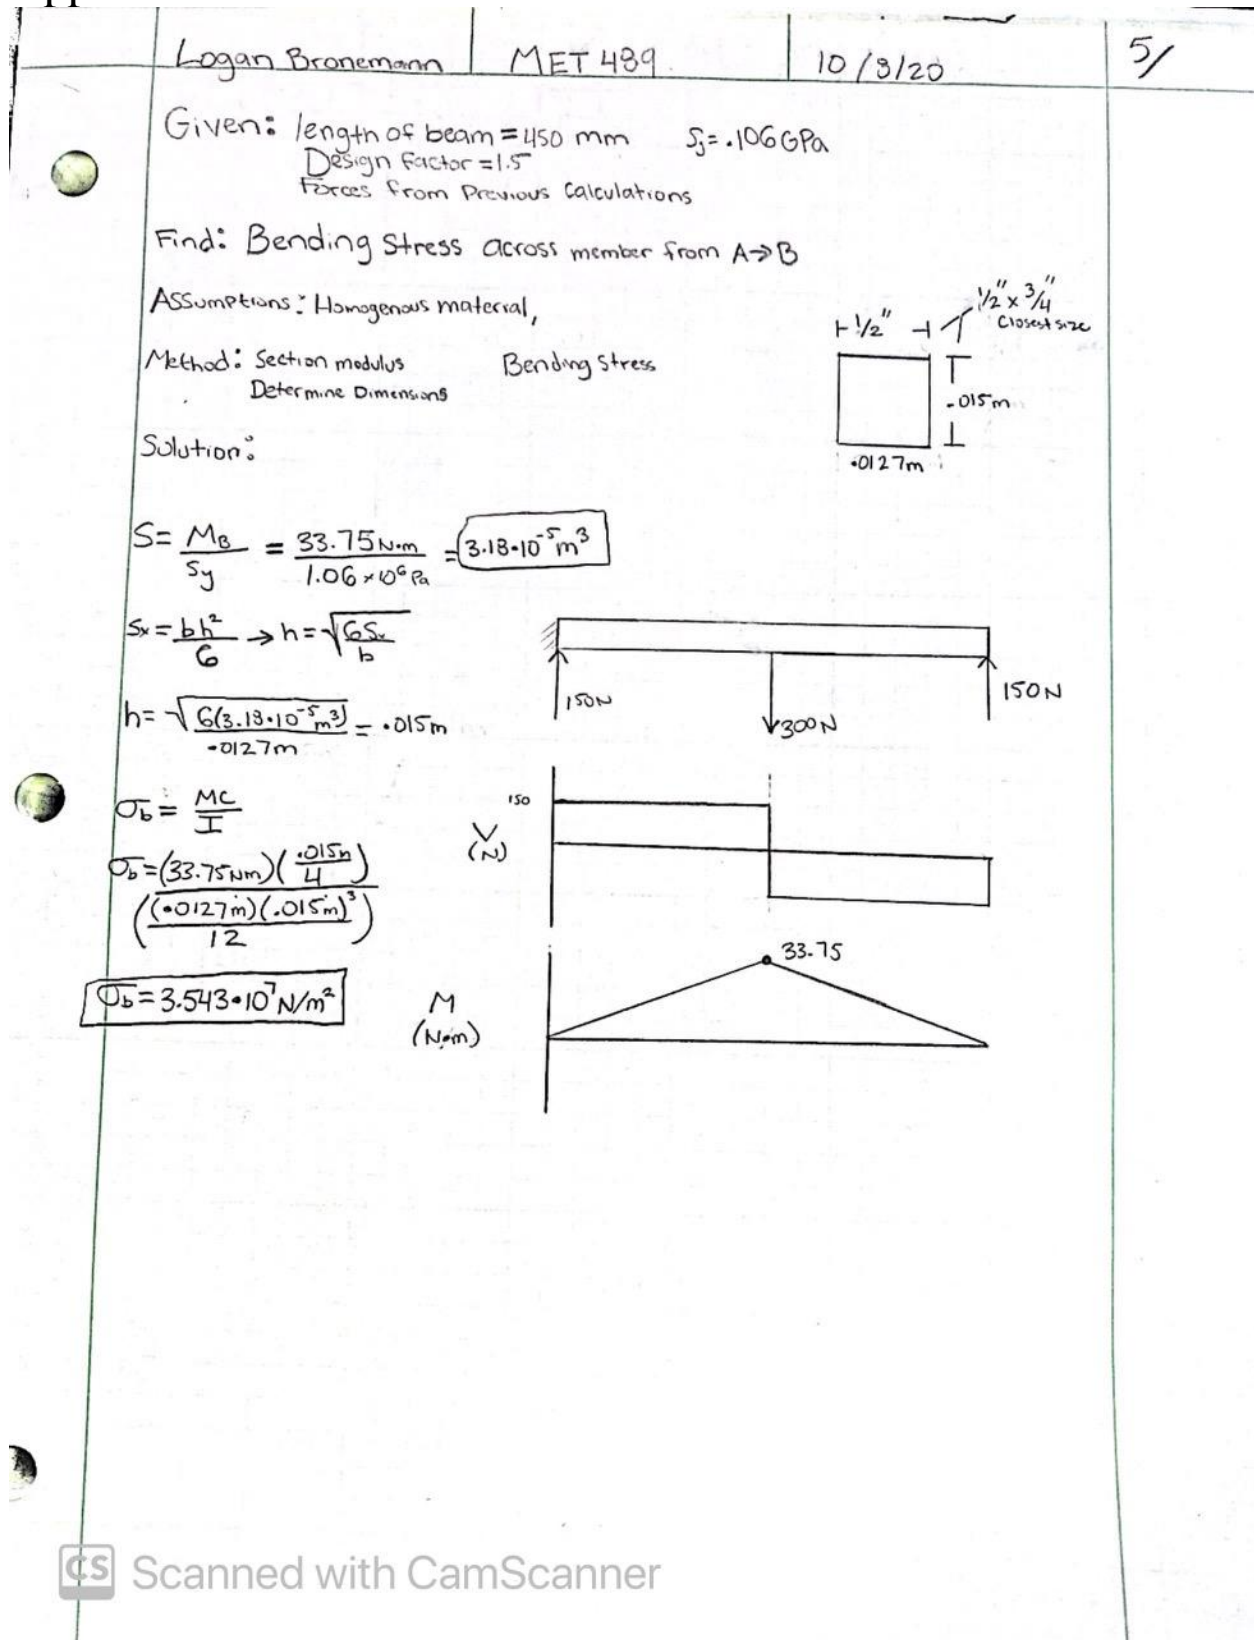 Logan Bronemann MET 489 10/8/20 5/
Given: length of beam = 450 mm Sy = .106 GPa
Design Factor = 1.5
Forces from Previous Calculations
Find: Bending Stress across member from A→B
Assumptions: Homogenous material,
1/2" x 3/4"
Closest size
1/2"
Method: Section modulus Bending Stress
Determine Dimensions
.015m
.0127m
Solution:
S = MB/Sy = 33.75 N·m / 1.06×10⁶ Pa = 3.18·10⁻⁵ m³
Sx = bh²/6 → h = √(6Sx/b)
150N 300N 150N
h = √(6(3.18·10⁻⁵m³)/.0127m) = .015m
σb = MC/I
150
V
(N)
σb = (33.75Nm)(.015m/4) / ((.0127m)(.015m)³/12)
33.75
σb = 3.543·10⁷ N/m²
M
(N·m)
CS Scanned with CamScanner